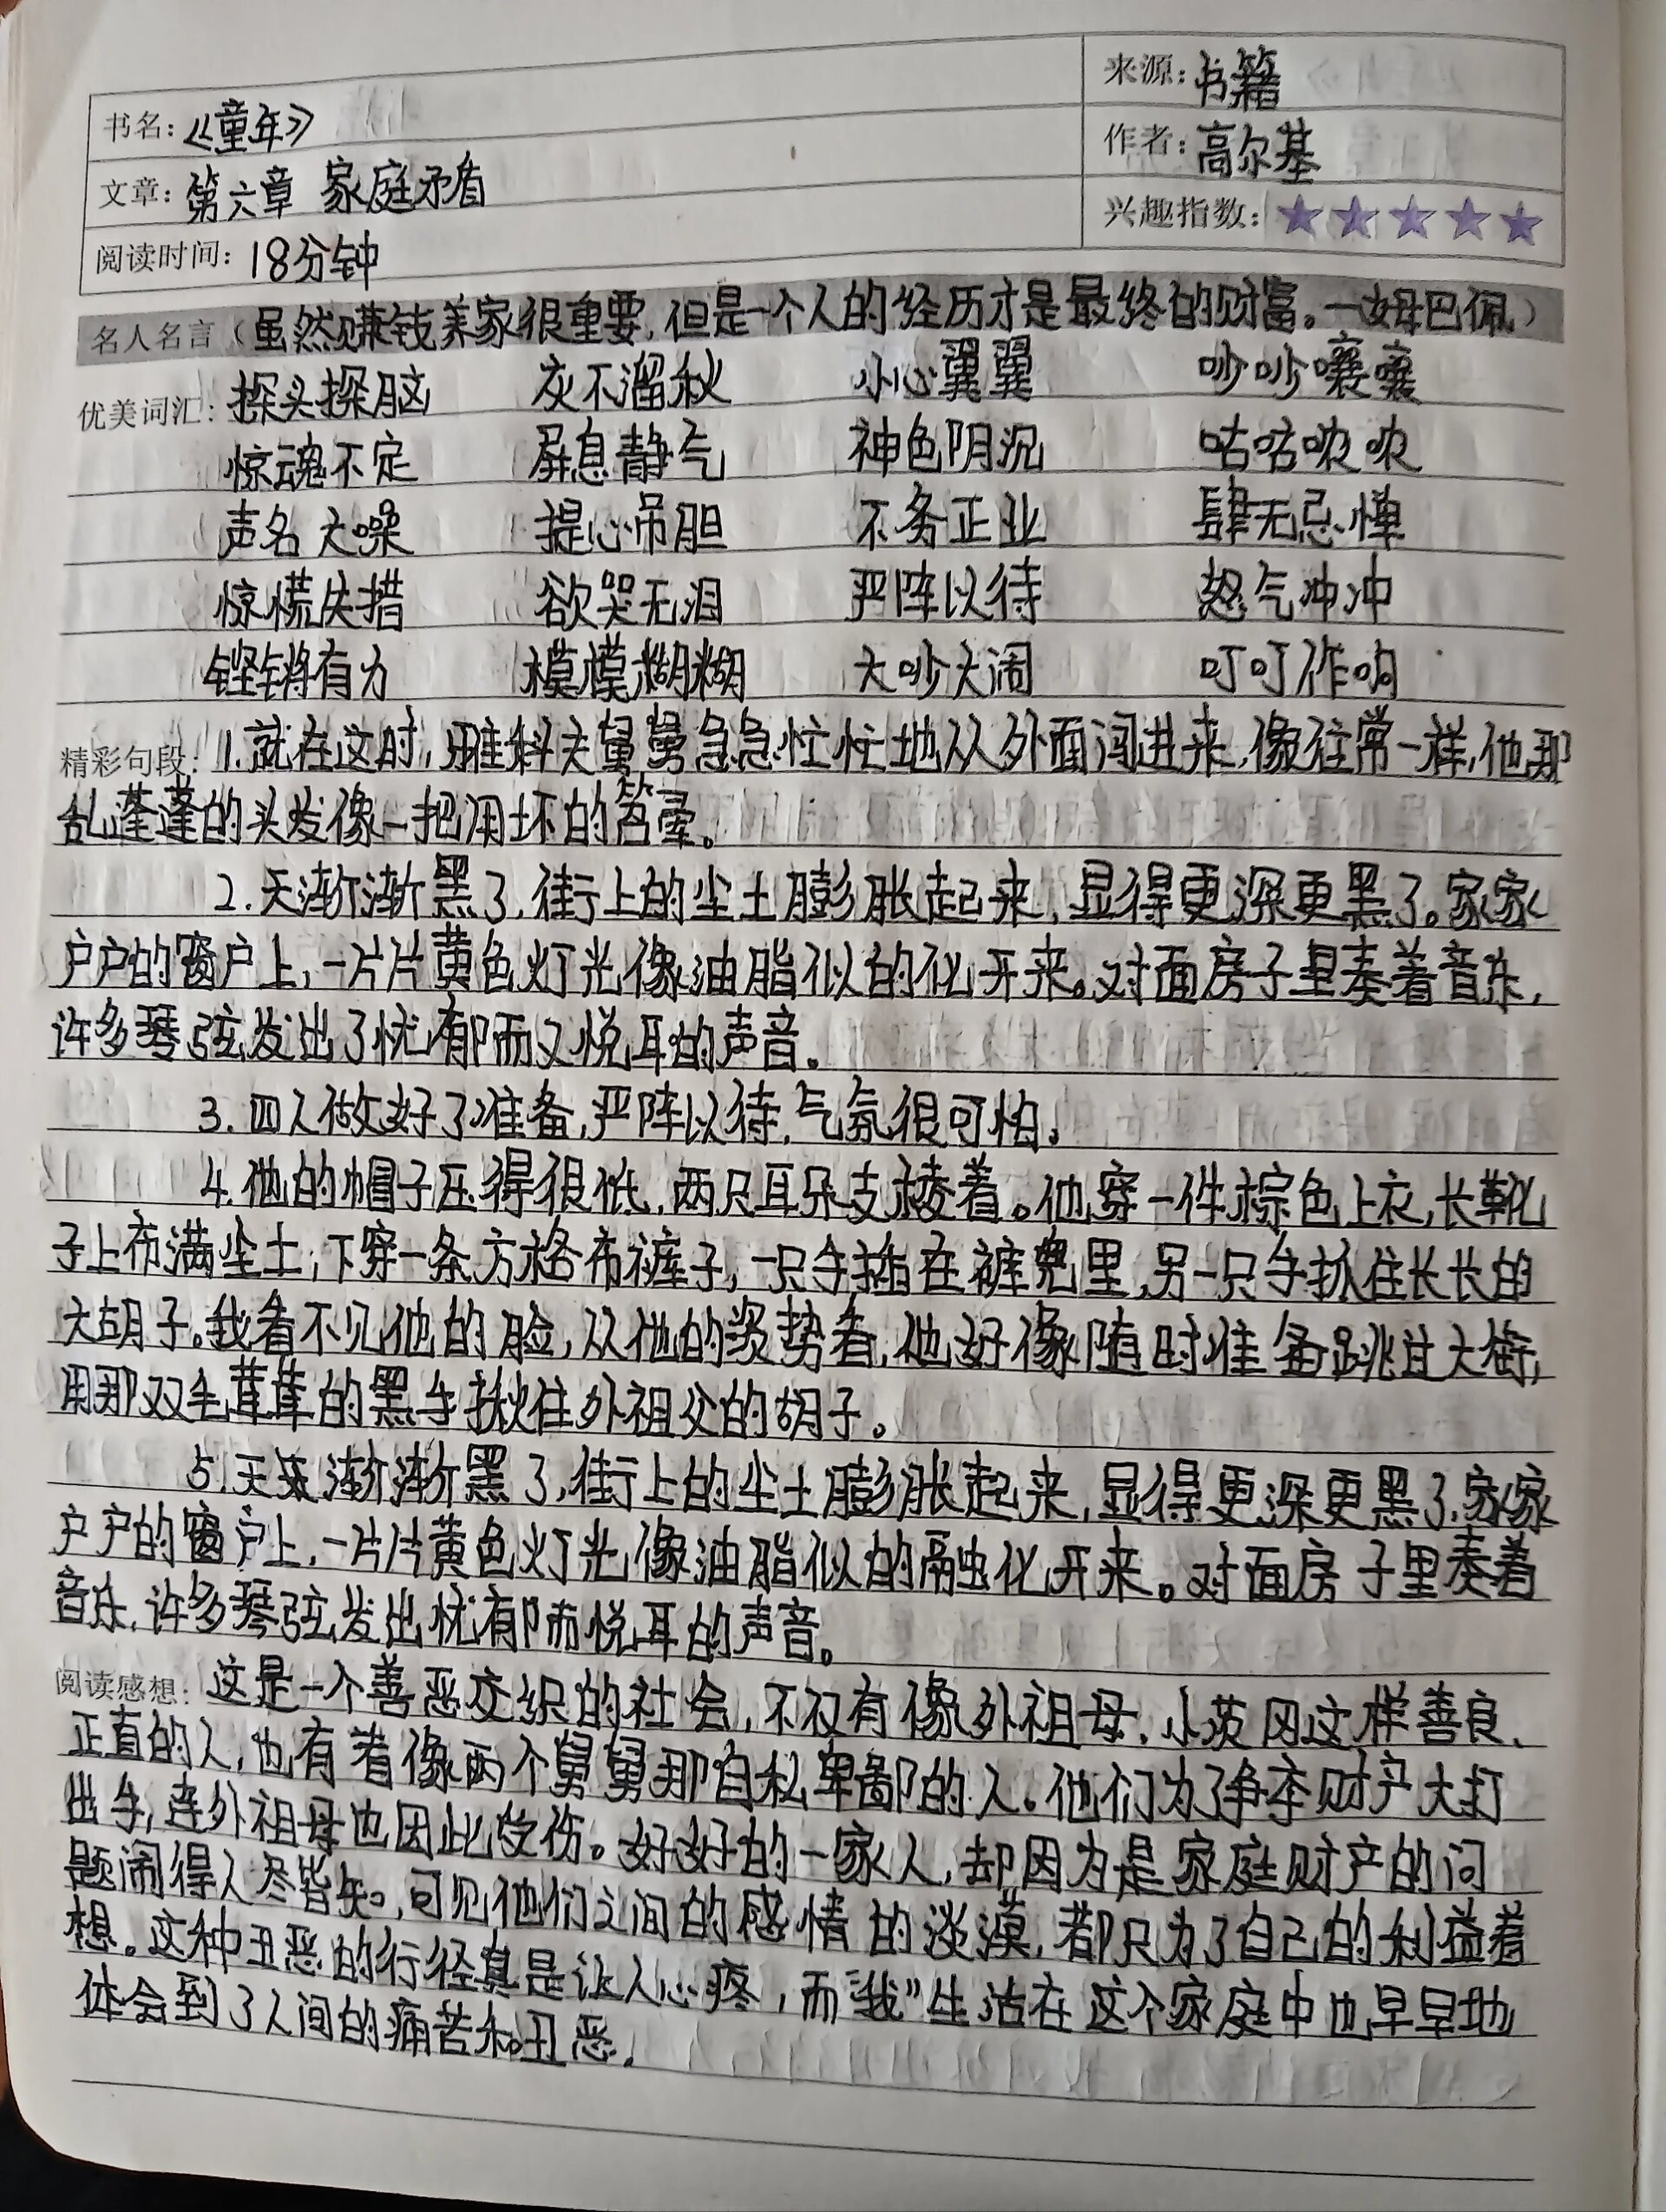 书名：《童年》
来源：书籍
文章：第六章 家庭矛盾
作者：高尔基
阅读时间：18分钟
兴趣指数：★★★★★
名人名言（虽然赚钱养家很重要，但是一个人的经历才是最终的财富。—姆巴佩）
优美词汇：探头探脑 灰不溜秋 小心翼翼 吵吵嚷嚷
惊魂不定 屏息静气 神色阴沉 咕咕哝哝
声名大噪 提心吊胆 不务正业 肆无忌惮
惊慌失措 欲哭无泪 严阵以待 怒气冲冲
铿锵有力 模模糊糊 大吵大闹 叮叮作响
精彩句段：1.就在这时，雅科夫舅舅急急忙忙地从外面闯进来，像往常一样，他那
乱蓬蓬的头发像一把用坏的笤帚。
2.天渐渐黑了，街上的尘土膨胀起来，显得更深更黑了。家家
户户的窗户上，一片片黄色灯光像油脂似的化开来。对面房子里奏着音乐，
许多琴弦发出了忧郁而又悦耳的声音。
3.四人做好了准备，严阵以待，气氛很可怕。
4.他的帽子压得很低，两只耳朵支棱着。他穿一件棕色上衣，长靴
子上布满尘土，下穿一条方格布裤子，一只手插在裤兜里，另一只手抓住长长的
大胡子。我看不见他的脸，从他的姿势看，他好像随时准备跳过大街，
用那双毛茸茸的黑手揪住外祖父的胡子。
5.天渐渐黑了，街上的尘土膨胀起来，显得更深更黑了，家家
户户的窗户上，一片片黄色灯光像油脂似的融化开来。对面房子里奏着
音乐，许多琴弦发出忧郁而悦耳的声音。
阅读感想：这是一个善恶交织的社会，不仅有像外祖母、小茨冈这样善良、
正直的人，也有着像两个舅舅那自私卑鄙的人。他们为了争夺财产大打
出手，连外祖母也因此受伤。好好的一家人，却因为是家庭财产的问
题闹得人尽皆知，可见他们之间的感情的淡漠，都只为了自己的利益着
想。这种丑恶的行径真是让人心疼，而“我”生活在这个家庭中也早早地
体会到了人间的痛苦和丑恶。